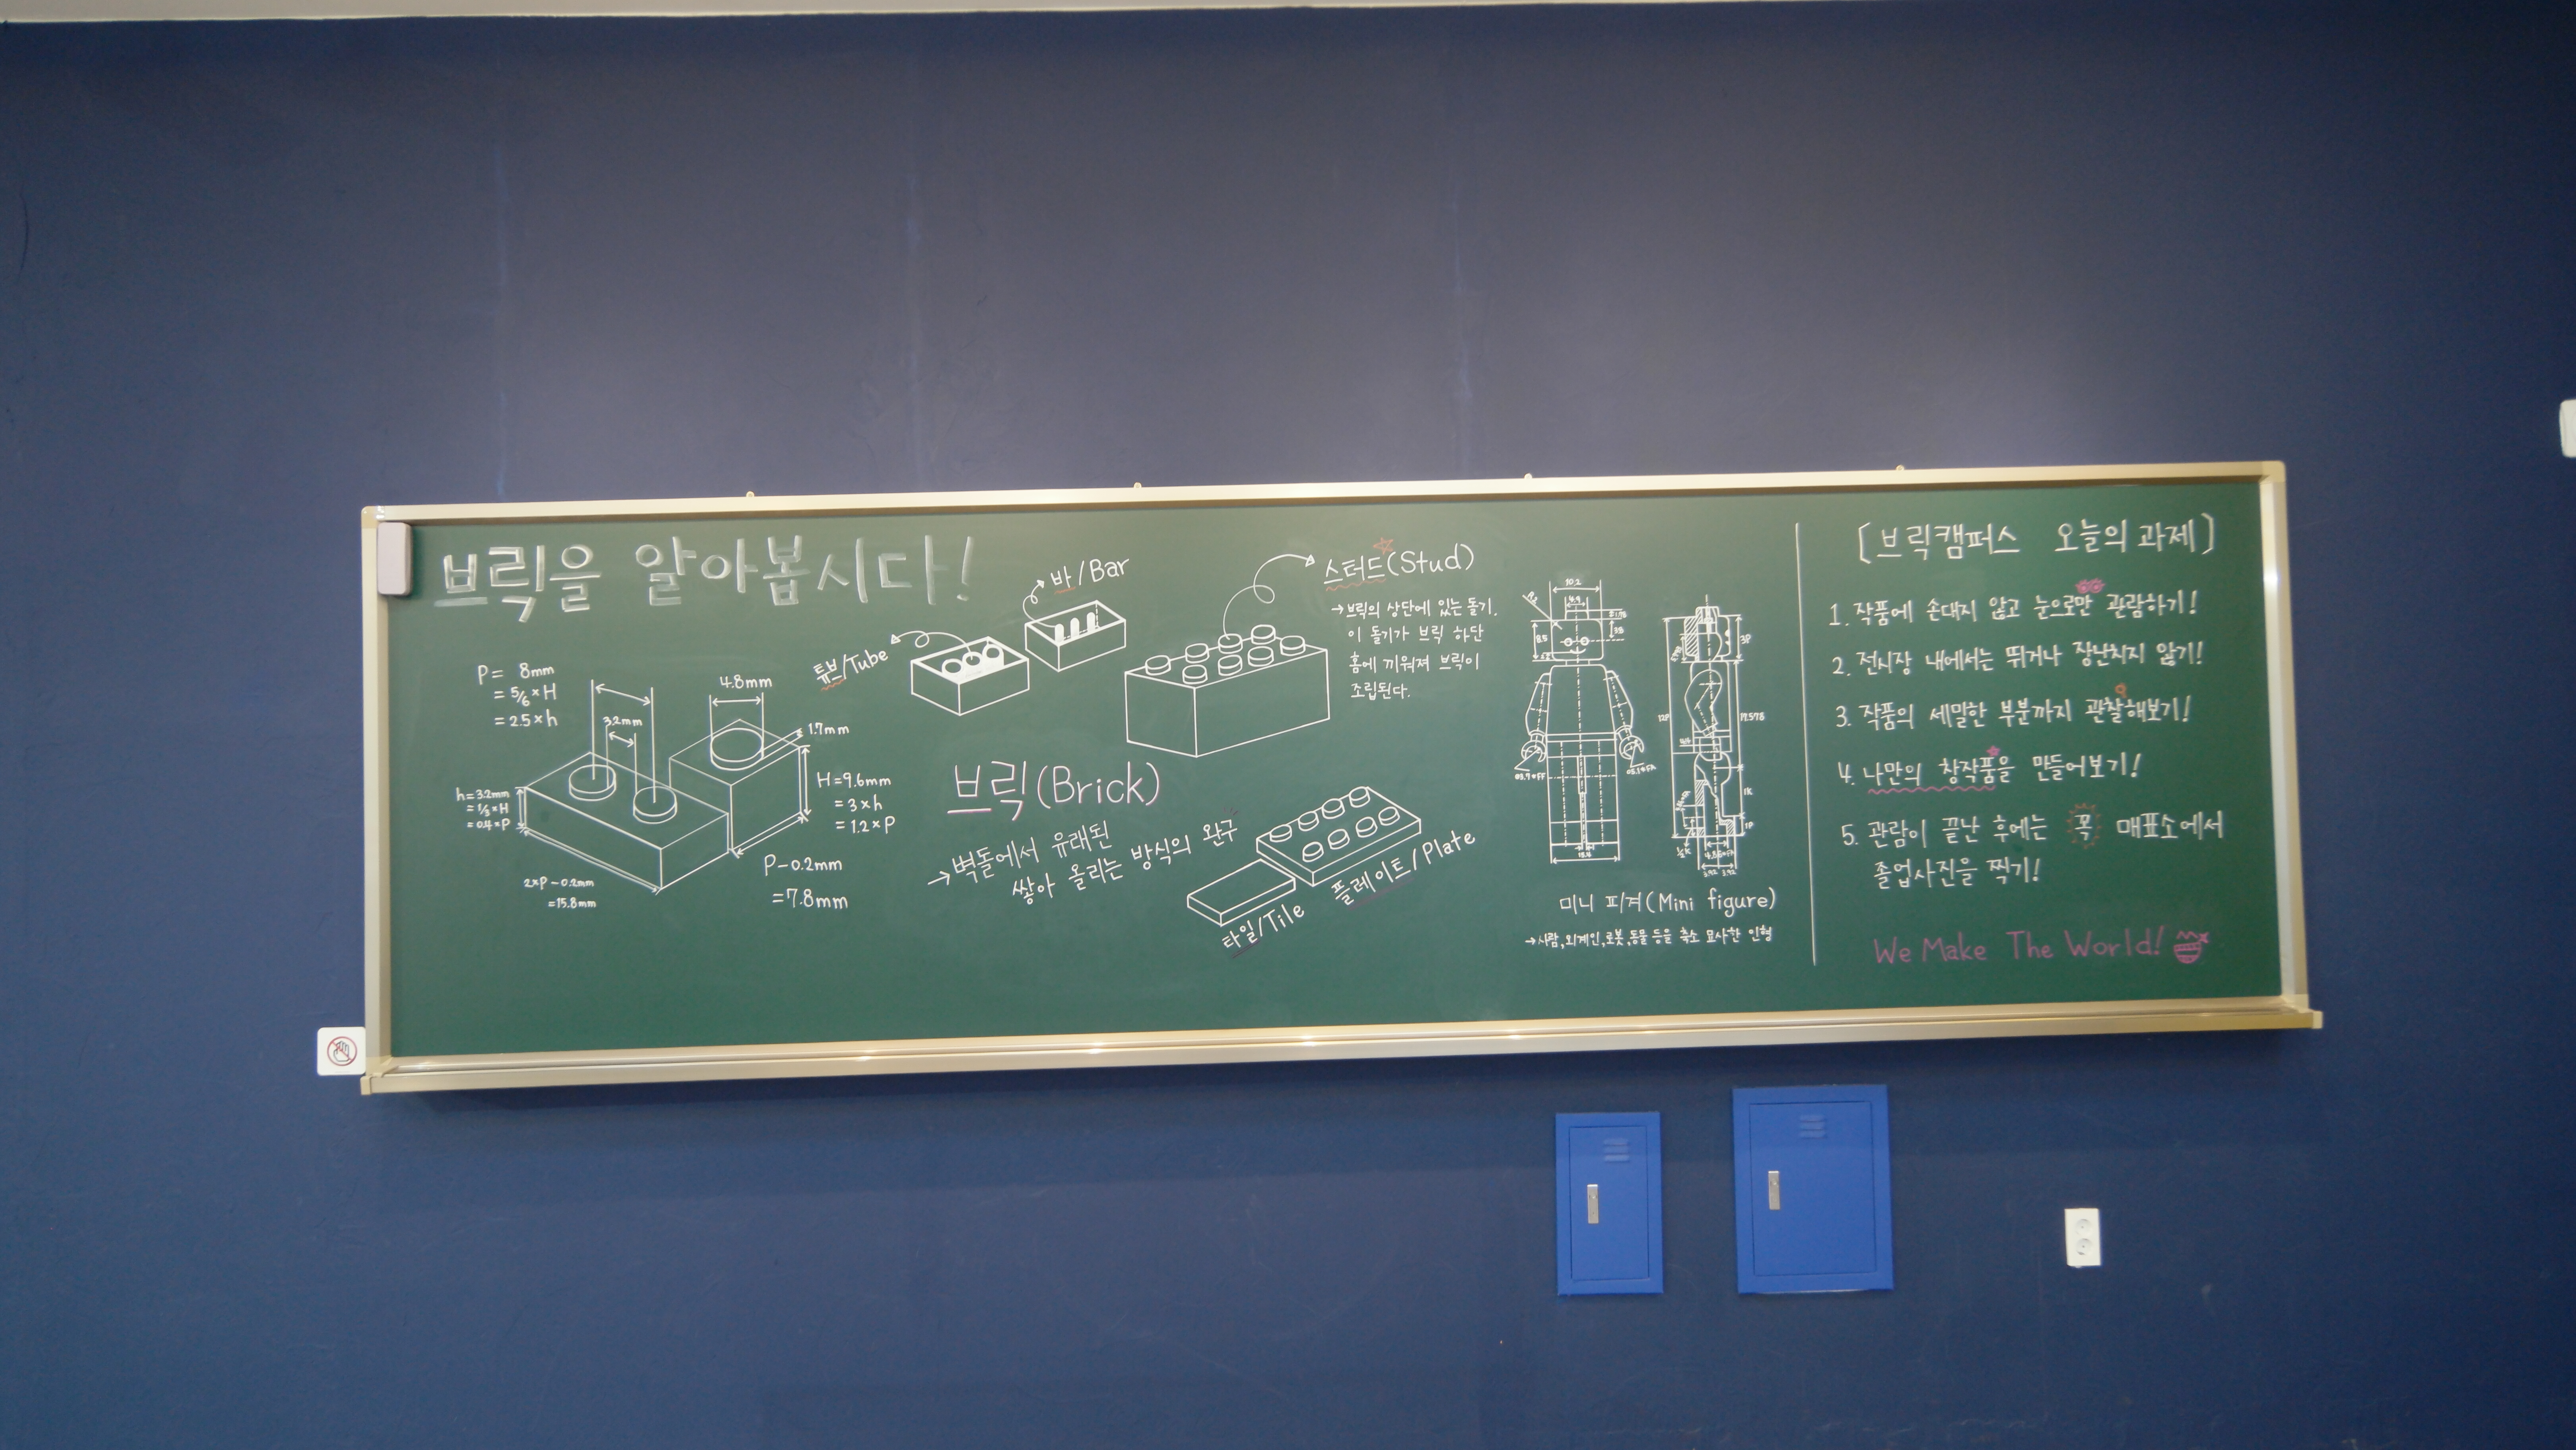 브릭을 알아봅시다!
P = 8mm
= 5/6 × H
= 2.5 × h
3.2mm
4.8mm
1.7mm
h = 3.2mm
= 1/3 × H
= 0.4 × P
H = 9.6mm
= 3 × h
= 1.2 × P
2×P - 0.2mm
= 15.8mm
P - 0.2mm
= 7.8mm
튜브/Tube
바/Bar
스터드(Stud)
→ 브릭의 상단에 있는 돌기.
이 돌기가 브릭 하단
홈에 끼워져 브릭이
조립된다.
브릭(Brick)
→ 벽돌에서 유래된
쌓아 올리는 방식의 완구
타일/Tile
플레이트/Plate
10.2
4.9
8.5
3P
12P
1K
1P
미니 피겨(Mini figure)
→ 사람, 외계인, 로봇, 동물 등을 축소 묘사한 인형
[브릭캠퍼스 오늘의 과제]
1. 작품에 손대지 않고 눈으로만 관람하기!
2. 전시장 내에서는 뛰거나 장난치지 않기!
3. 작품의 세밀한 부분까지 관찰해보기!
4. 나만의 창작품을 만들어보기!
5. 관람이 끝난 후에는 꼭 매표소에서
졸업사진을 찍기!
We Make The World!